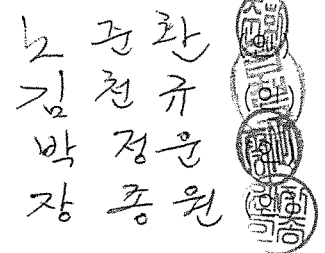 노 준 환
김 천 규
박 정 운
장 종 원